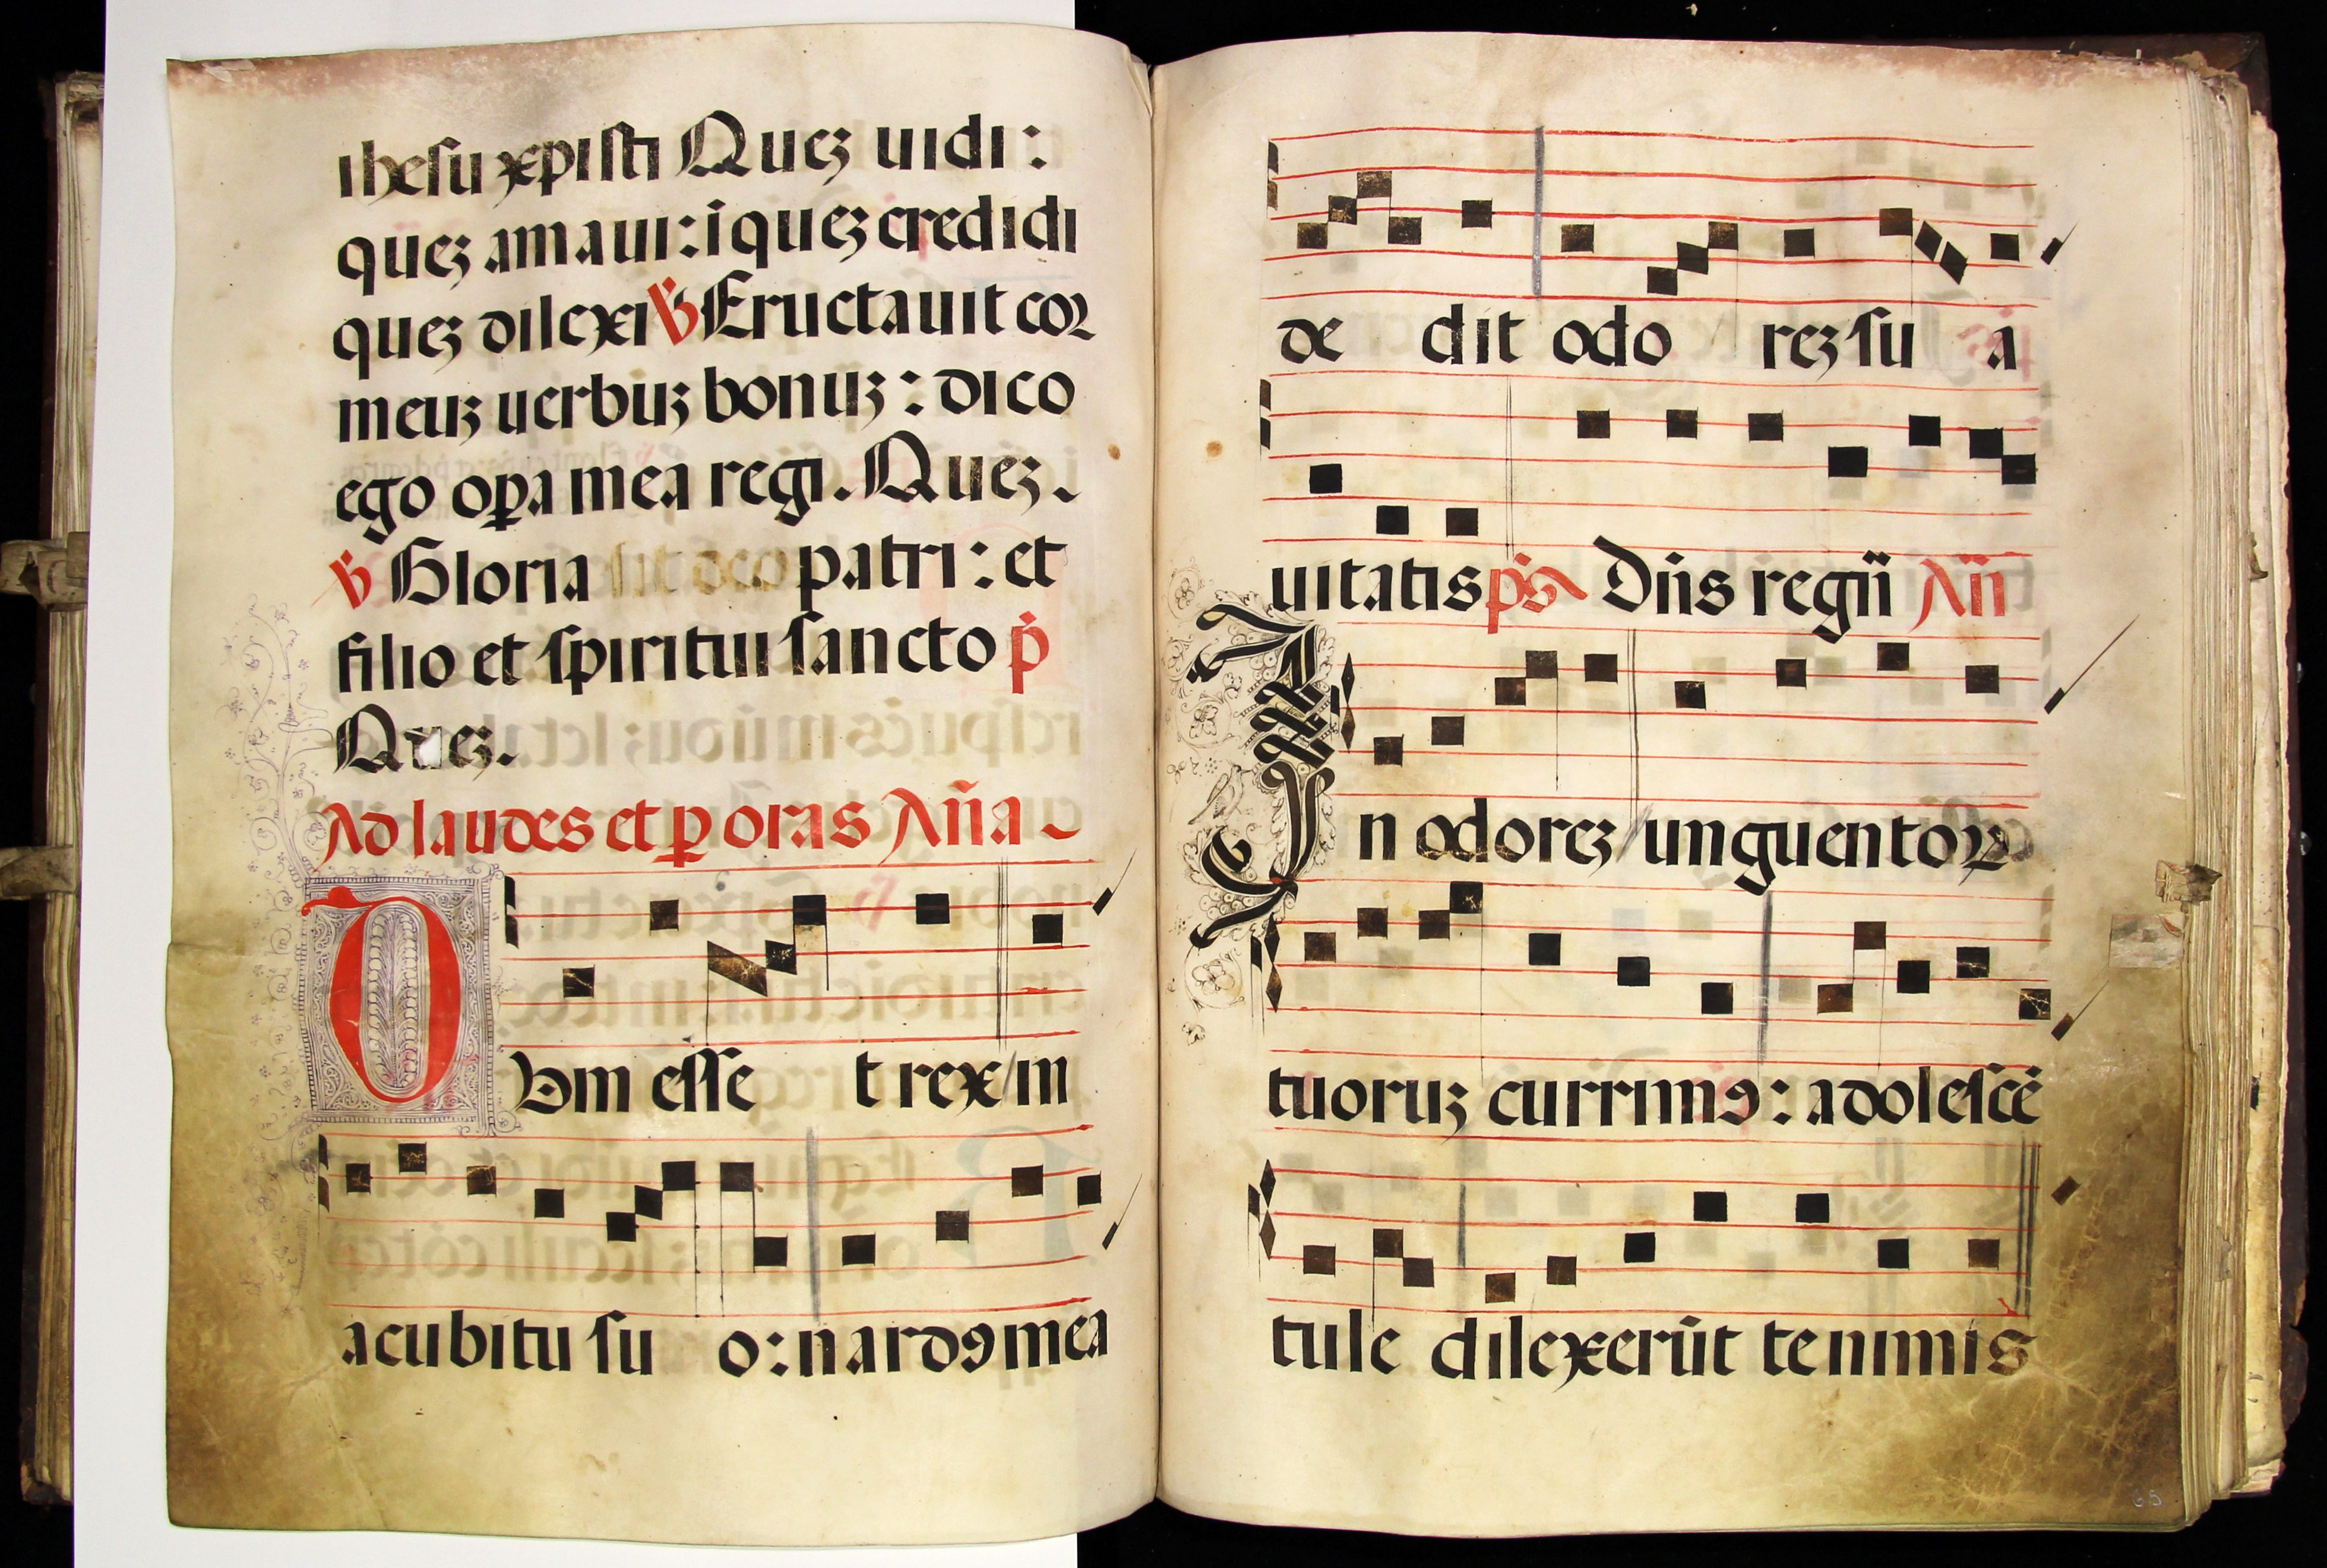 ihesu xp̄isti Queꝫ uidi:
queꝫ amaui: ī queꝫ credidi
queꝫ dilexi ℣ Eructauit coꝛ
meuꝫ uerbuꝫ bonuꝫ: dico
ego oꝑa mea regi. Queꝫ.
℣ Gloria sit deo patri: et
filio et spiritui sancto p̄
Queꝫ.
Ad laudes et ꝑ oras Añа
Dvm esse t rex in
acubitu su o: nardꝯ mea
de dit odo reꝫ su a
uitatis p̄s Dñs regñ Añ
In odoreꝫ unguentoꝝ
tuoruꝫ currimꝯ: adolescē
tule dilexerūt te nimis
65